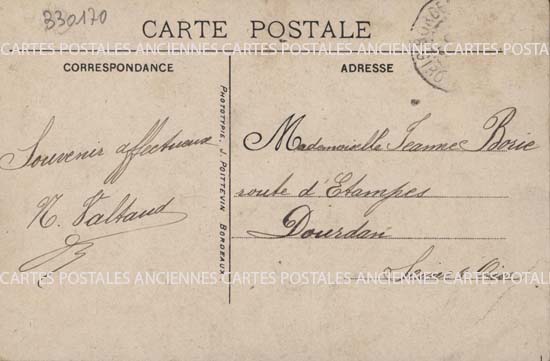 330170
CARTE POSTALE
CARTES POSTALES ANCIENNES CARTES POSTALES ANCIENNES CARTES POSTALES
CORRESPONDANCE
ADRESSE
Souvenir affectueux
N. Valtaud
PHOTOTYPIE. J. POITTEVIN BORDEAUX
Mademoiselle Jeanne Borie
route d'Etampes
Dourdan
Seine & Oise
CARTES POSTALES ANCIENNES CARTES POSTALES ANCIENNES CARTES POSTALES